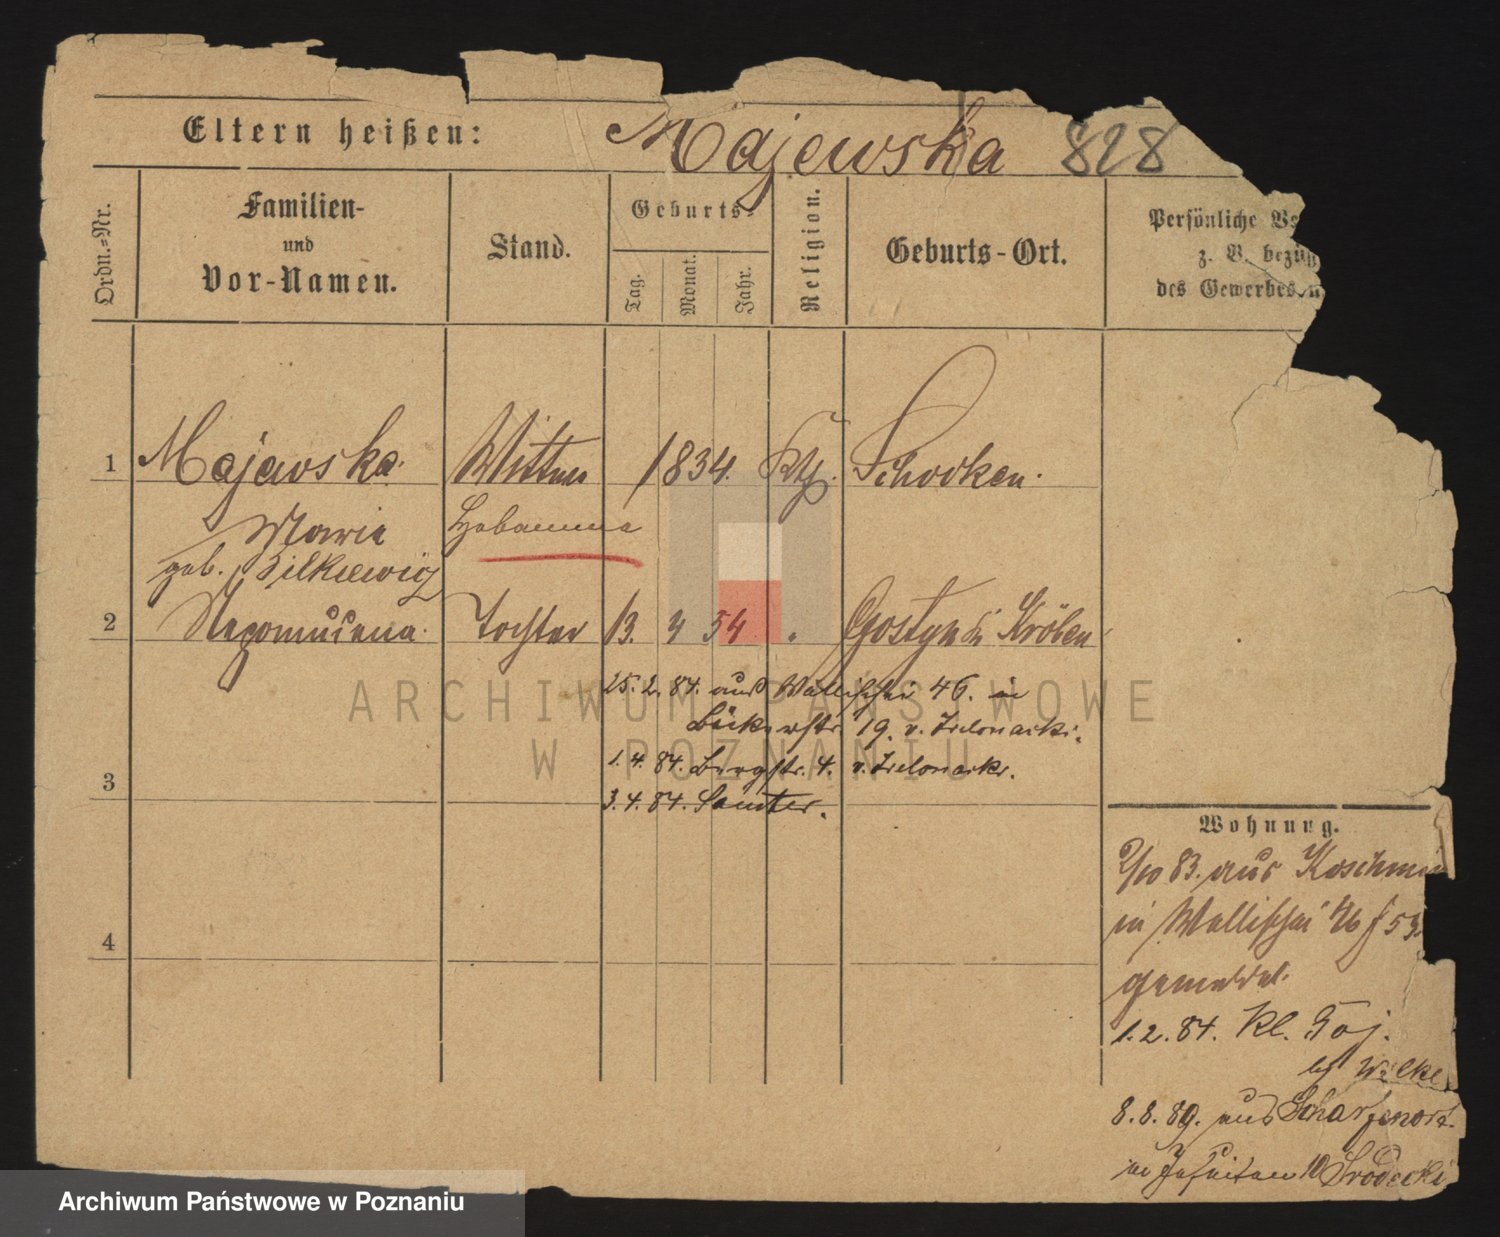 Eltern heißen: Majewska 828
Ordn.=Nr.
Familien-
und
Vor-Namen.
Stand.
Geburts=
Tag.
Monat.
Jahr.
Religion.
Geburts-Ort.
Persönliche
z. B.
des Gewerbes
1 Majewska Wittwe 1834. Kth. Schocken.
Marie Hebamme
geb.
2 Nepomucena. Tochter 13. 4 54 " Gostyn Kr Kröben
25. 2. 84. aus Wallischei 46. in
Bäckerstr. 19. v. Zielonacki.
1. 4. 84. Bergstr. 4. v. Zielonacki.
3
3. 4. 84. Samter.
Wohnung.
2/10 83. aus Koschmin
in Wallischei 46 f 53
gemeldet.
4
1. 2. 84. Kl.
by Wilke
8. 8. 89. aus Scharfenort
in Jesuiten 10 Srodecki
ARCHIWUM PAŃSTWOWE
W POZNANIU
Archiwum Państwowe w Poznaniu